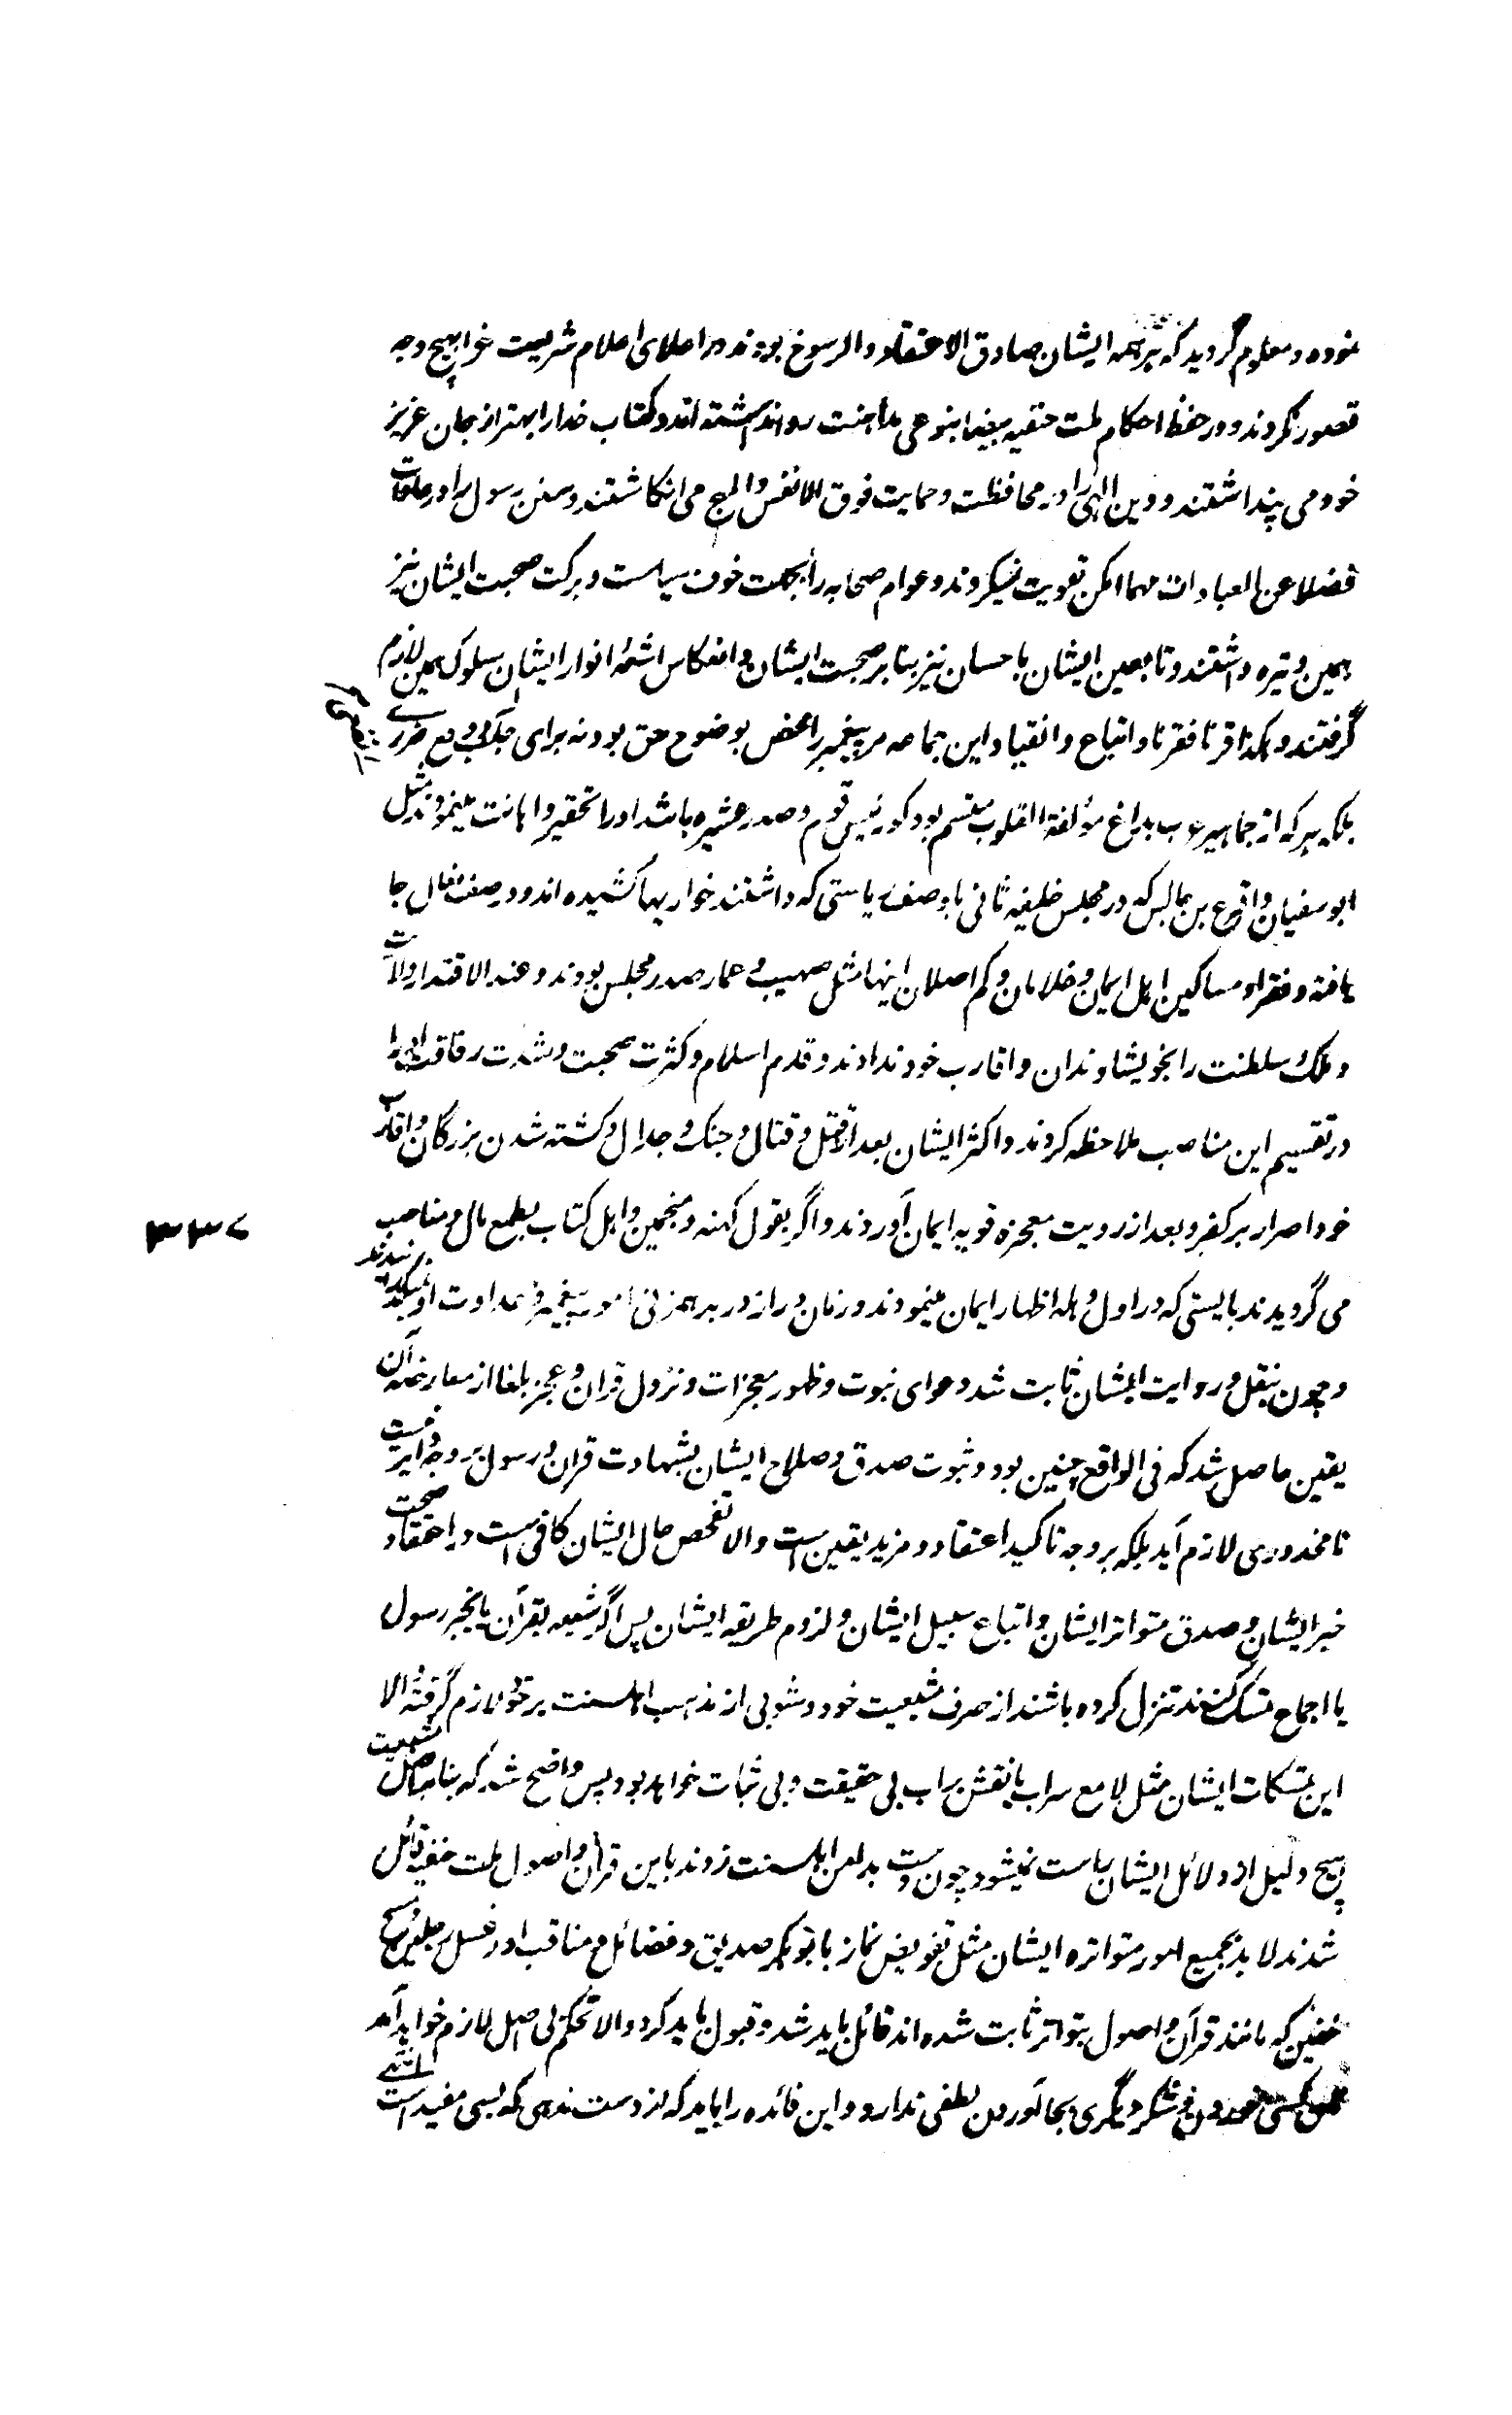 نموده و معلوم گردید که همه ایشان صادق الاعتقاد و الرسوخ بودند در اعلای اعلام شریعت غرا بهیچ وجه
قصور نکردند و در حفظ احکام ملت حنفیه بیضا بنوعی مداهنت روا نداشته اند و کتاب خدا را بهتر از جان عزیز
خود می پنداشتند و دین الهی را در محافظت و حمایت فوق الانفس و المهج می انکاشتند و سنن رسول را در عادات
فضلا عن العبادات مهما امکن تقویت میکردند و عوام صحابه را بجهت خوف سیاست و برکت صحبت ایشان نیز
همین وتیره داشتند و تابعین ایشان باحسان نیز بنا بر صحبت ایشان و انعکاس اشعهٔ انوار ایشان سلوک همین لازم
گرفتند و هکذا قرنا فقرنا و اتباع و انقیاد این جماعه مر پیغمبر را محض بوضوح حق بود نه برای جلب و دفع ضرری
بلکه هر که از جماهیر عرب بداغ مؤلفة القلوب متسم بود کو رئیس قوم و صدر عشیره باشد او را تحقیر و اهانت مینمودند مثل
ابو سفیان و اقرع بن حابس که در مجلس خلیفه ثانی با وصف ریاستی که داشتند خواریها کشیده اند و در صف نعال جا
یافته و فقرا و مساکین اهل ایمان و غلامان و کم اصلان اینها مثل صهیب و عمار صدر مجلس بودند و عند الاقتدار ولایت
و ملک و سلطنت را بخویشاوندان و اقارب خود ندادند و قدم اسلام و کثرت صحبت و شدت رفاقت او را
در تقسیم این مناصب ملاحظه کردند و اکثر ایشان بعد از قتل و قتال و جنک و جدال و کشته شدن بزرگان و اقارب
خود اصرار بر کفر و بعد از رویت معجزه قویه ایمان آوردند و اگر بقول کهنه و منجمین و اهل کتاب بطمع مال و مناصب
می گرویدند بایستی که در اول وهله اظهار ایمان مینمودند و زمان دراز در برهمزنی امور پیغمبر و عداوت او نمیگذرانیدند
و چون بنقل و روایت ایشان ثابت شد دعوای نبوت و ظهور معجزات و نزول قران و عجز بلغا از معارضه آن
یقین حاصل شد که فی الواقع چنین بود و ثبوت صدق و صلاح ایشان بشهادت قران و رسول بر وجه دائریست
تا محذوری لازم آید بلکه بر وجه تاکید اعتقاد و مزید یقین است و الا تفحص حال ایشان کافی است در اعتقاد صحت
خبر ایشان و صدق متواتر ایشان و اتباع سبیل ایشان و لزوم طریقه ایشان پس اگر شیعه بقرآن یا بخبر رسول
یا اجماع تمسک کنند تنزل کرده باشند از صرف شیعیت خود و شوبی از مذهب اهلسنت بر خود لازم گرفته و الا
این تمسکات ایشان مثل لامع سراب یا نقش بر آب بی حقیقت و بی ثبات خواهد بود پس واضح شد که بنا بر اصل شیعیت
هیچ دلیل از دلائل ایشان راست نمیشود و چون دست بدامن اهلسنت زدند باین قران و اصول ملت حنفیه قائل
شدند لا بد بجمیع امور متواتره ایشان مثل تفویض نماز بابوبکر صدیق و فضائل و مناقب او و غسل رجلین و مسح
خفین که مانند قرآن و اصول بتواتر ثابت شده اند قائل باید شد و قبول باید کرد و الا تحکم بی اصل لازم خواهد آمد
شکر دیگری بجا آوردن لطفی ندارد و این فائده را باید که از دست ندهی که بسی مفید است انتهی
۳۳۷